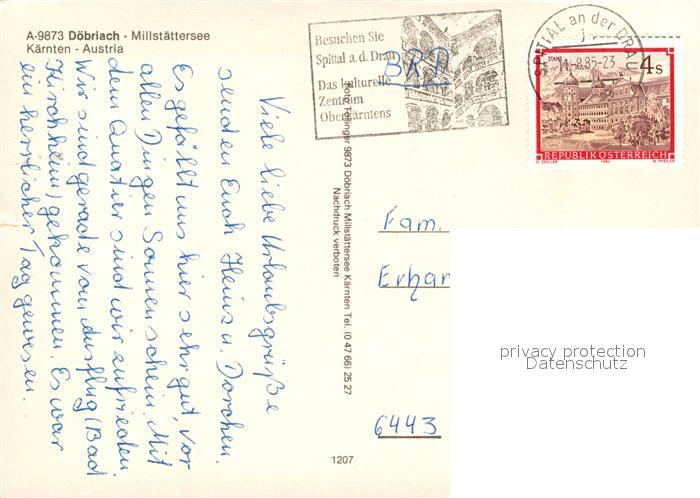 A-9873 Döbriach - Millstättersee
Kärnten - Austria
Viele liebe Urlaubsgrüße
senden Euch Heinz u. Dorchen.
Es gefällt uns hier sehr gut, vor
allen Dingen Sonnenschein. Mit
dem Quartier sind wir zufrieden.
Wir sind gerade vom Ausflug (Bad
Kirchheim) gekommen. Es war
ein herrlicher Tag gewesen.
Besuchen Sie
Spittal a. d. Drau
Das kulturelle
Zentrum
Oberkärntens
BRD
SPITTAL an der DRAU
-8.85-23
STAMS
4s
REPUBLIK ÖSTERREICH
9873 Döbriach Millstättersee Kärnten Tel. (0 47 66) 25 27
Nachdruck verboten
Fam.
Erhar
6443
1207
privacy protection
Datenschutz